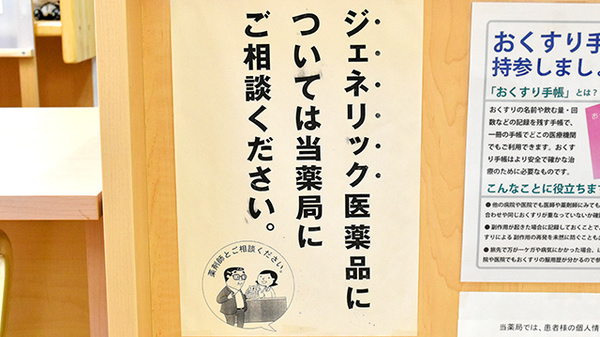 ジェネリック医薬品に
ついては当薬局に
ご相談ください。
薬剤師とご相談ください。
おくすり手
持参しまし
「おくすり手帳」とは?
おくすりの名前や飲む量・回
数などの記録を残す手帳で、
一冊の手帳でどこの医療機関
でもご利用できます。おくす
り手帳はより安全で確かな治
療のために必要なものです。
こんなことに役立ちます
●他の病院や医院でも医師や薬剤師にみても
合わせや同じおくすりが重なっていないか確
●副作用が起きた場合に記録しておくことで、
すりによる 副作用の再発を未然に防ぐことも
●旅先で万が一ケガや病気にかかった場合、
院や医院でもおくすりの服用歴が分かるので
当薬局では、患者様の個人情